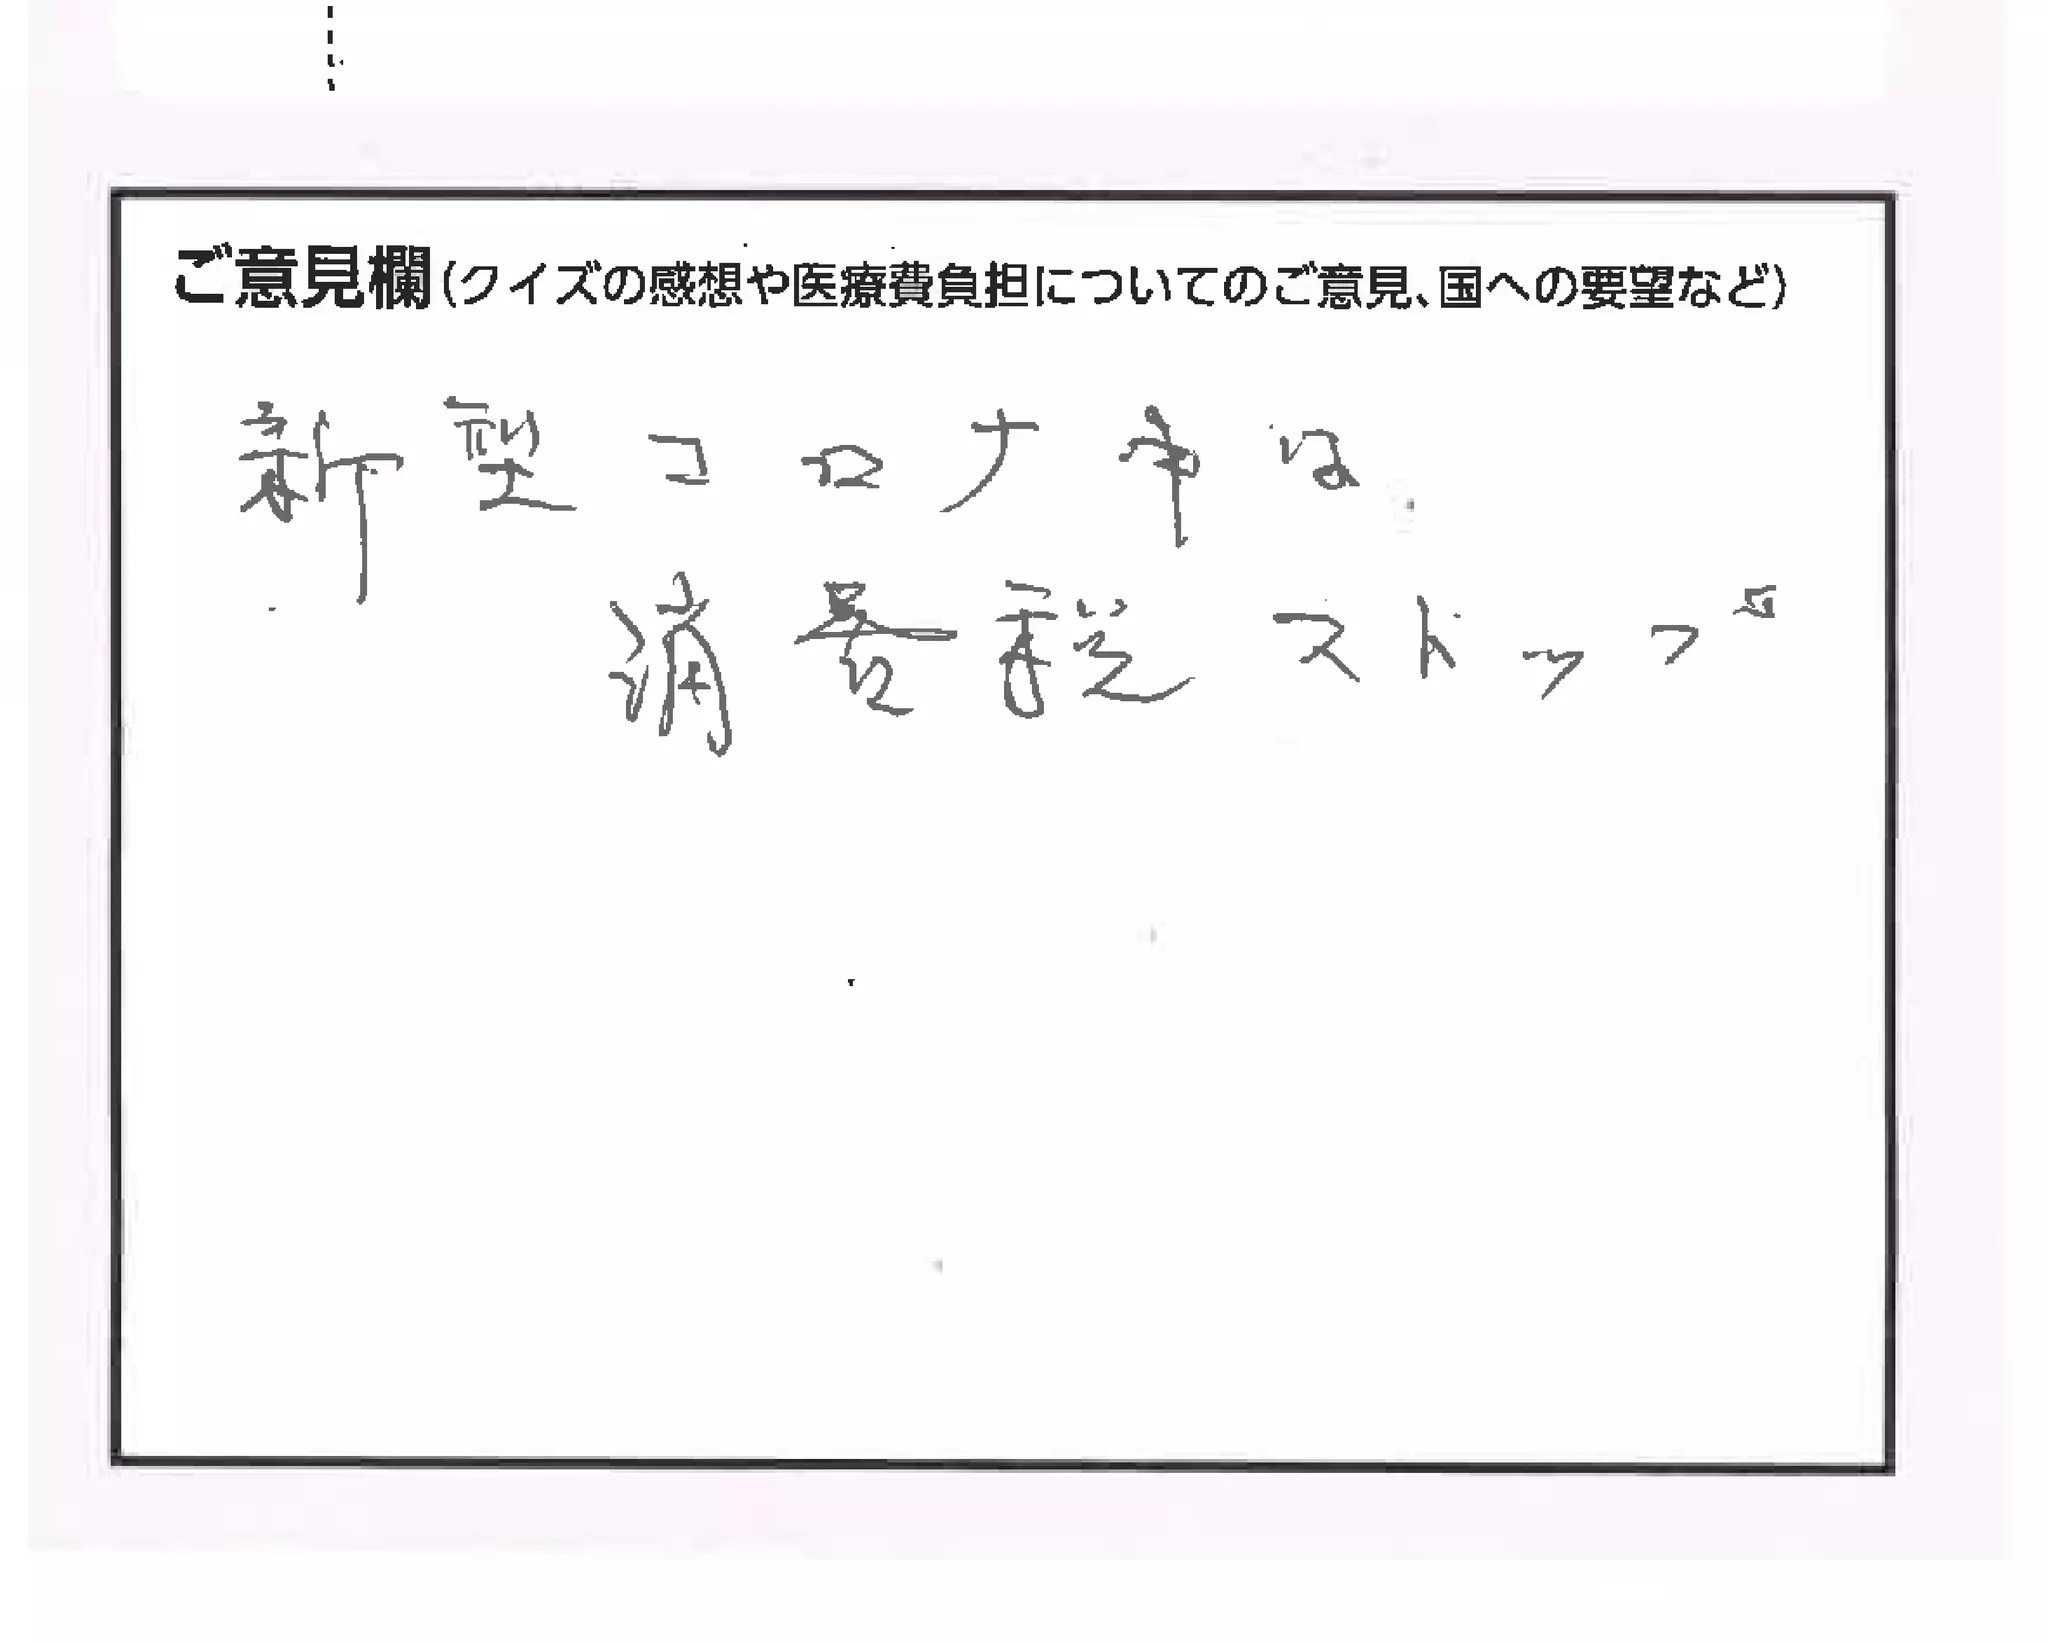 ご意見欄(クイズの感想や医療費負担についてのご意見、国への要望など)
新型コロナ中は
消費税ストップ